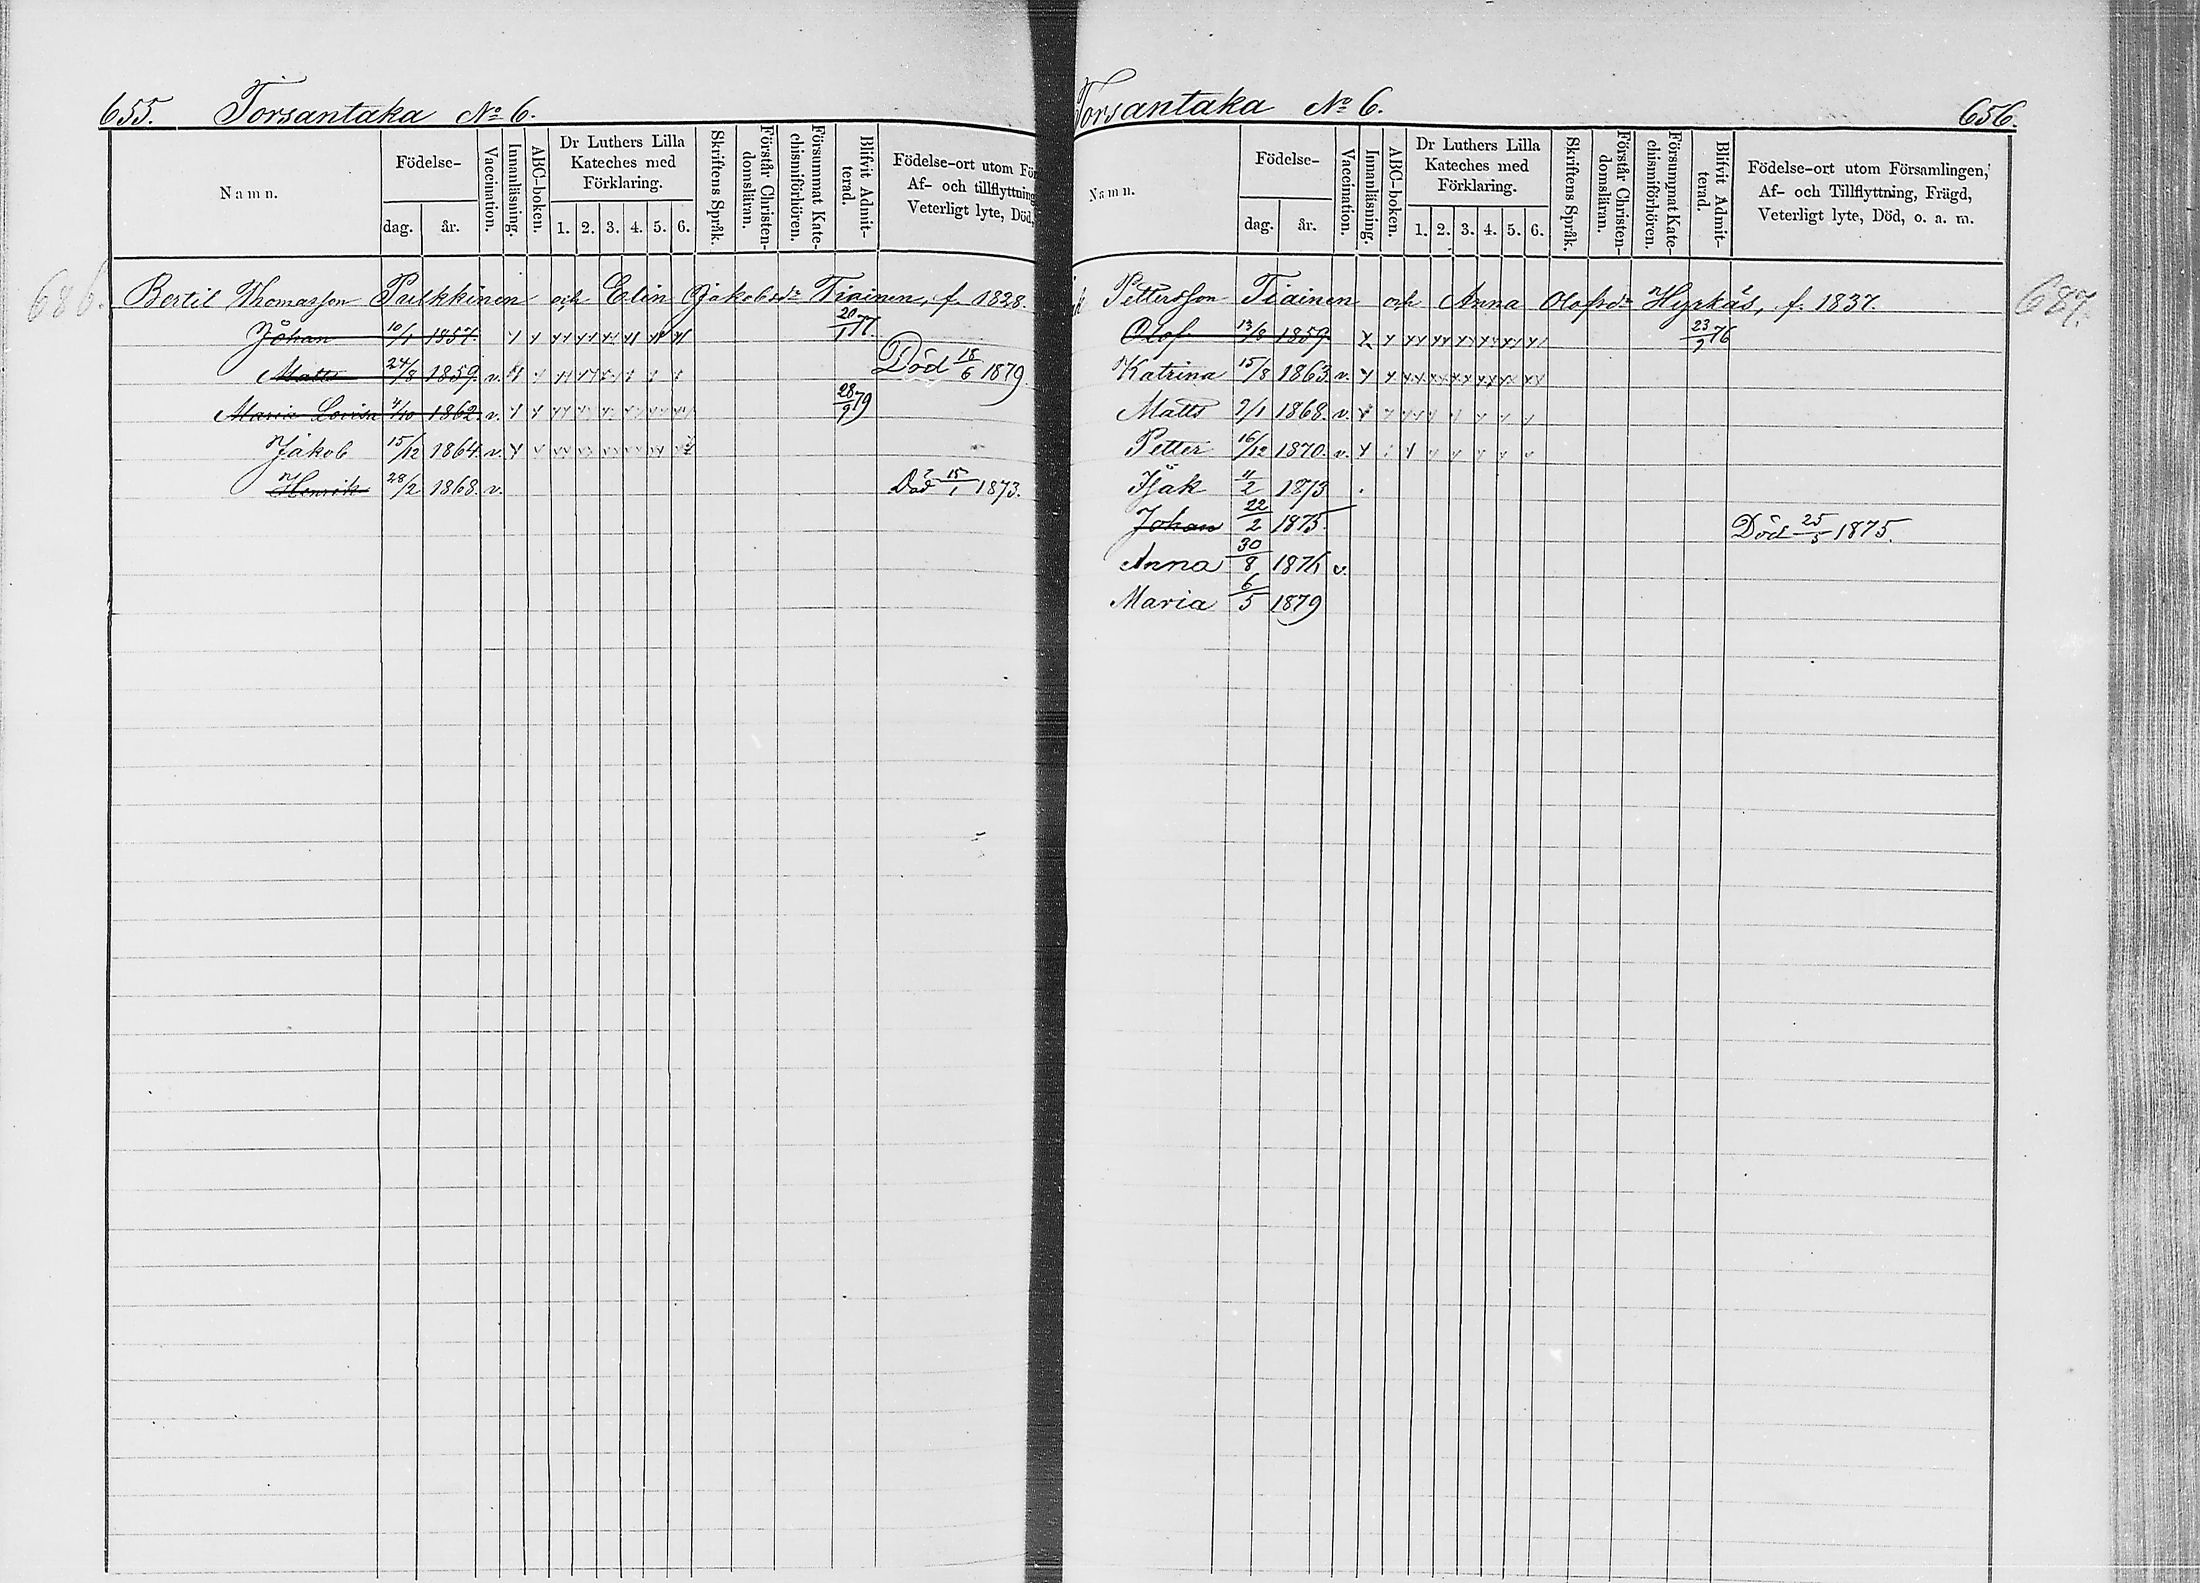 655. Torsantaka No 6.
Namn.
Födelse-
dag. år.
Vaccination.
Innanläsning.
ABC-boken.
Dr Luthers Lilla
Kateches med
Förklaring.
1. 2. 3. 4. 5. 6.
Skriftens Språk.
Förstår Christen-
domsläran.
Försummat Kate-
chismiförhören.
Blifvit Admit-
terad.
Födelse-ort utom För
Af- och tillflyttning
Veterligt lyte, Död,
686.
Bertil Thomasson Pulkkinen och Elin Jakobsdr Tiainen, f. 1828.
Johan 10/1 1857. 20/1 77.
Matts 24/8 1859. v. Död 18/6 1879.
Maria Lovisa 4/10 1862. v. 28/9 79
Jakob 15/12 1864. v.
Henrik 28/2 1868. v. Död 15/1 1873.
Torsantaka No 6. 656.
Namn.
Födelse-
dag. år.
Vaccination.
Innanläsning.
ABC-boken.
Dr Luthers Lilla
Kateches med
Förklaring.
1. 2. 3. 4. 5. 6.
Skriftens Språk.
Förstår Christen-
domsläran.
Försummat Kate-
chismiförhören.
Blifvit Admit-
terad.
Födelse-ort utom Församlingen,
Af- och Tillflyttning, Frägd,
Veterligt lyte, Död, o. a. m.
Pettersson Tiainen och Anna Olofsdr Hyrkäs, f. 1837.
687.
Olof 13/8 1859. 23/9 76
Katrina 15/8 1863. v.
Matts 7/1 1868. v.
Petter 16/12 1870. v.
Isak 11/2 1873
Johan 22/2 1875 Död 25/5 1875.
Anna 30/8 1876 v.
Maria 6/5 1879